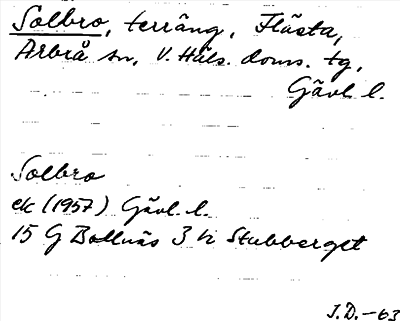 Solbro, terräng, Flästa,
Arbrå sn, V. Häls. doms. tg,
Gävl. l.
Solbro
ek (1957) Gävl. l.
15 G Bollnäs 3 h Stubberget
J.D.-63